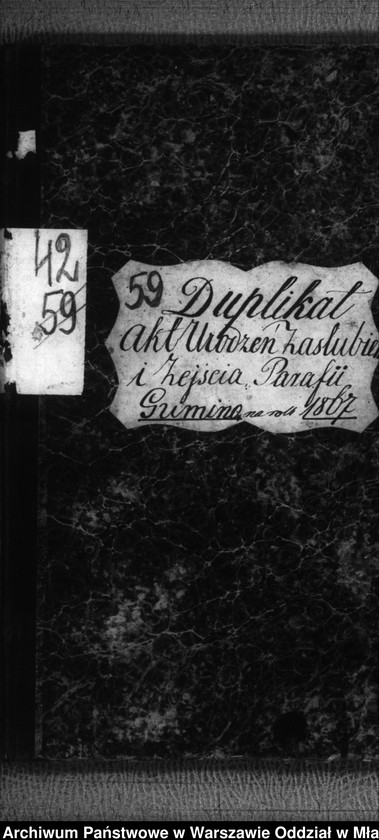 42
59
59 Duplikat
akt Urodzeń Zaślubień
i Zejścia Parafii
Gumino na rok 1867
Archiwum Państwowe w Warszawie Oddział w Mła